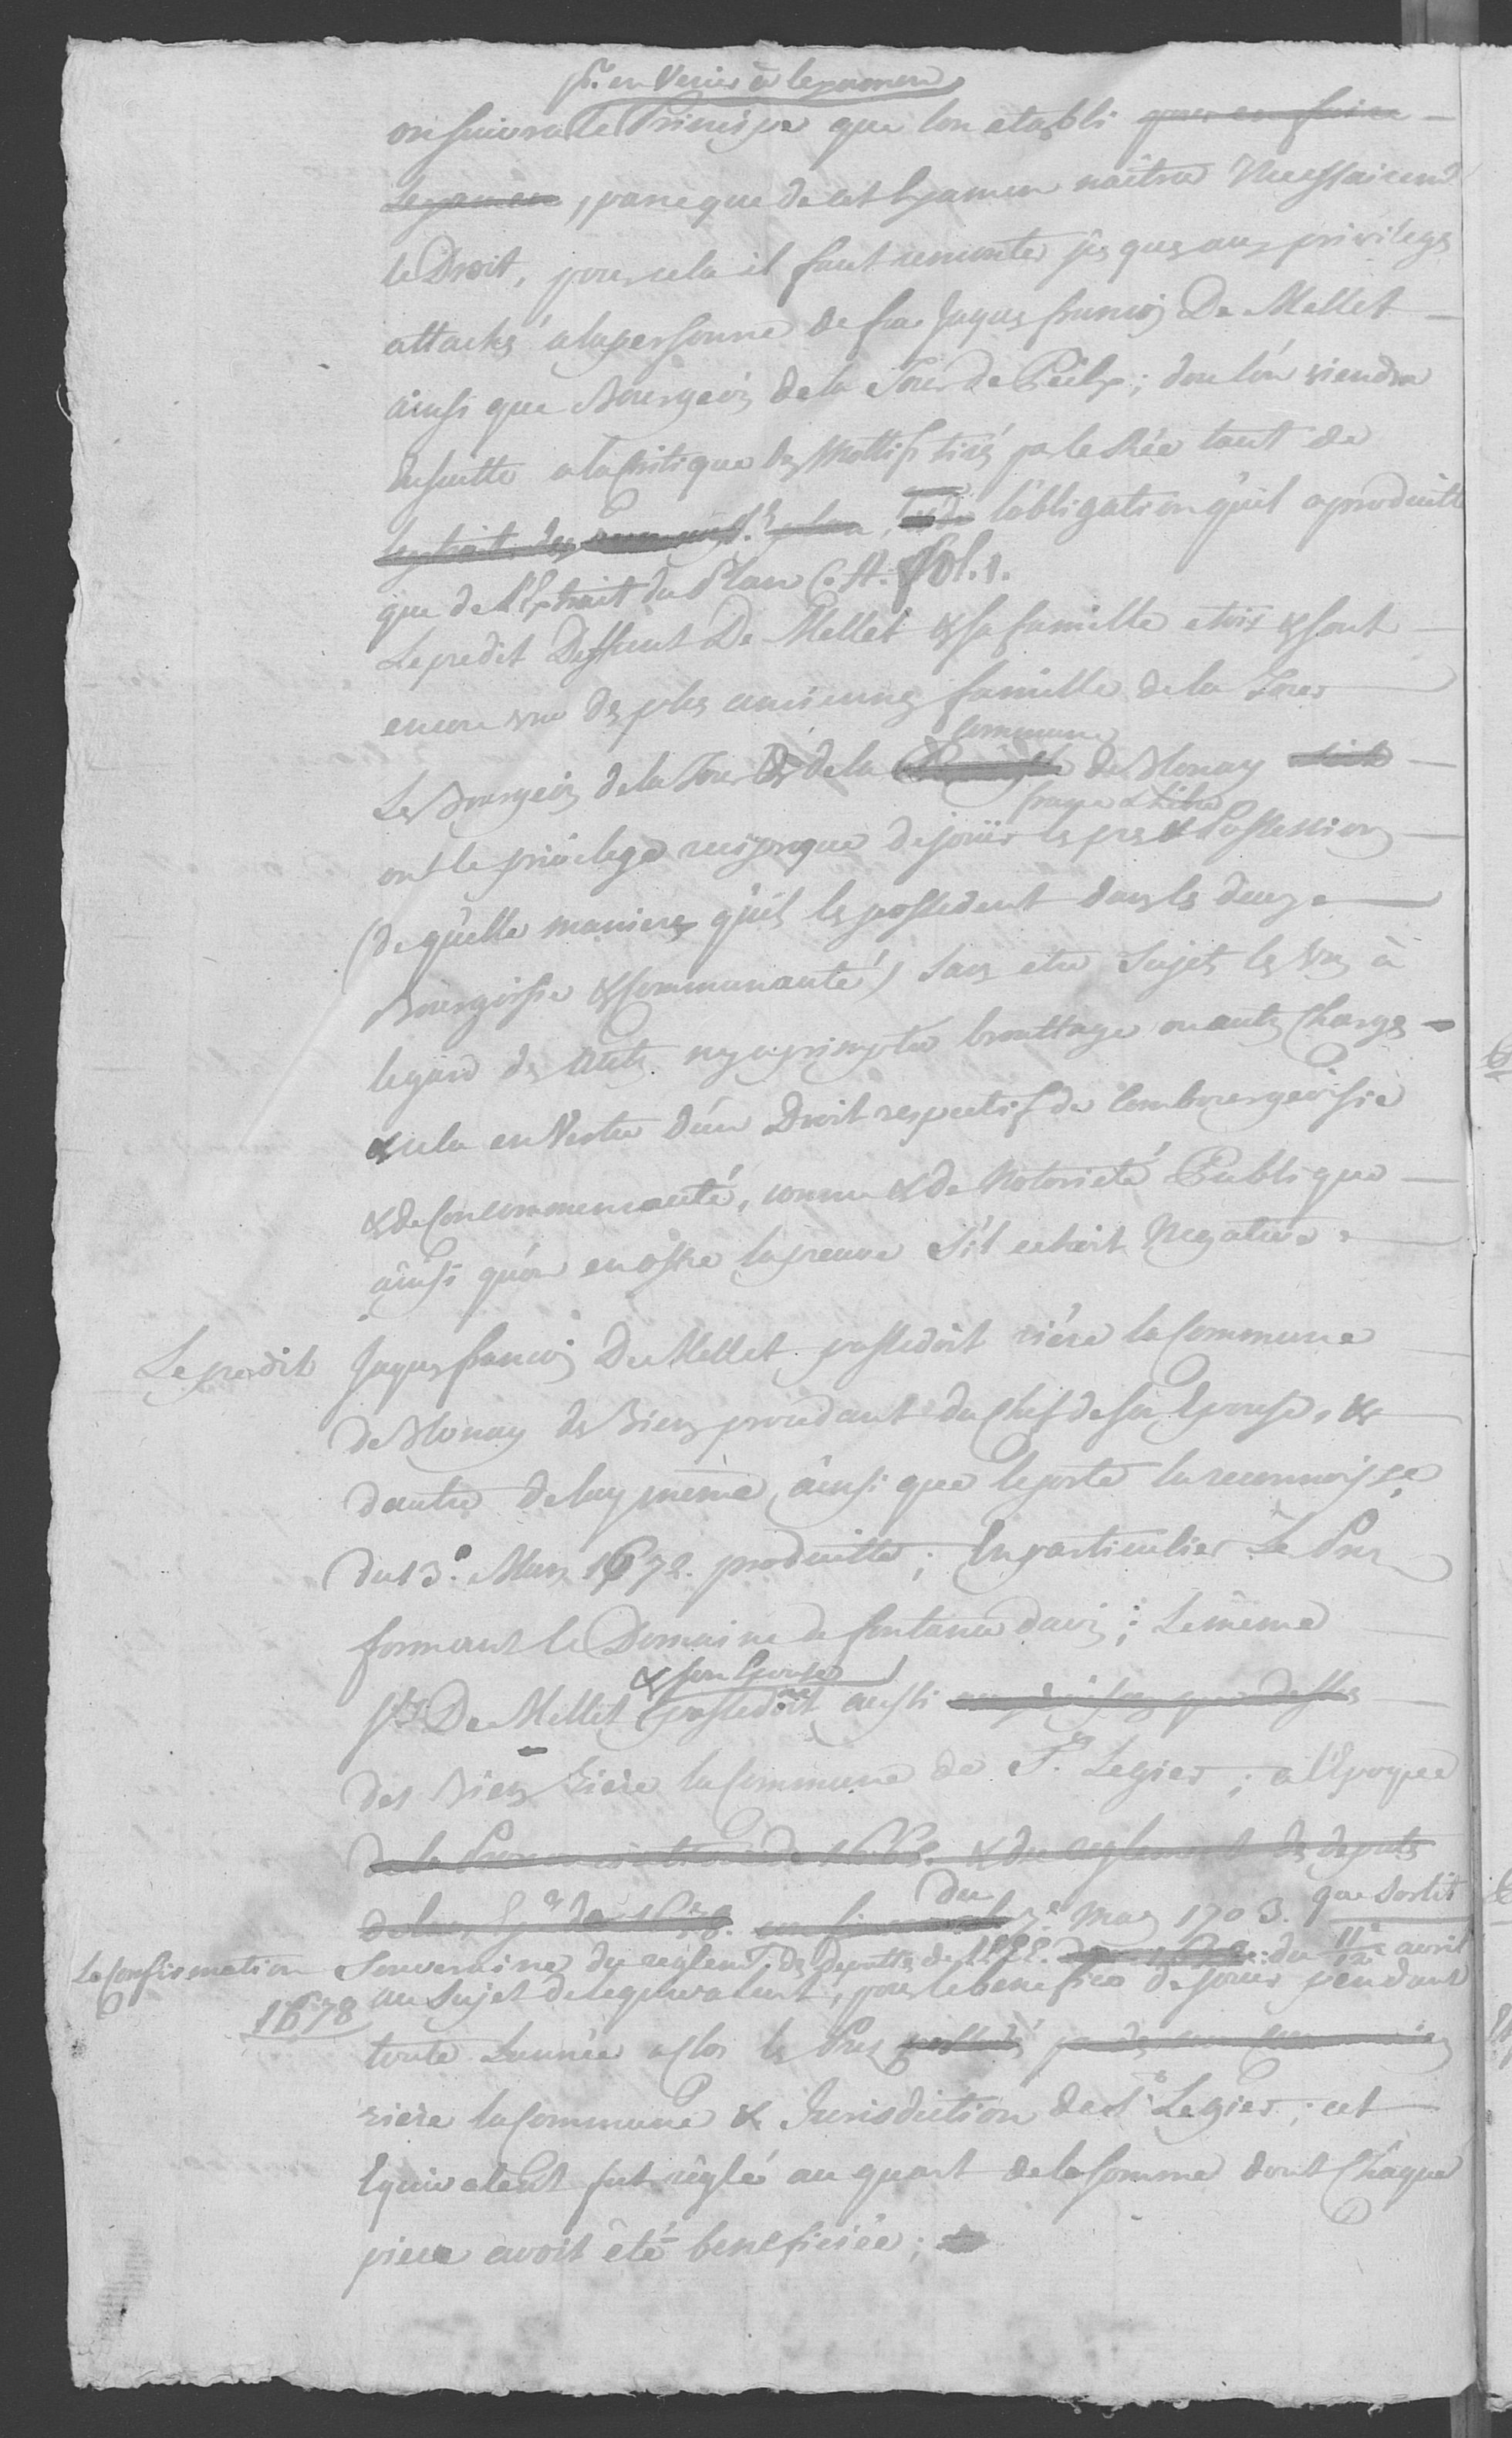 pr. en Venir à lexamen
on suivra le Principe que lon etabli pour en faire
lexamen, parceque de cet Examen naitra Necessairemt
le Droit, pour cela il faut remonter jusques aux privileges
attachés a la personne de feu Jaques francois De Mellet
ainsi que Bourgeois de la Tour de Peilz; dou lón viendra
Ensuitte a la Critique des Mottifs tirés par le Rée tant de
lextrait des plan lóbligation quil a produitte
que de l'Extrait du Plan C. A. fol. 1.
Le predit Deffunt De Mellet & sa famille etoit & sont
encore une des plus anciennes famille de la Tour
commune
Les Bourgeois de la Tour & de la Paroisse de Blonay
franc & Libre
ont le privilege reciproque de joüir les prés & Possessions
(de quelle maniere quils les possedent dans les deux
Bourgoisie & Communauté) sans etre Sujets les uns à
legard des autres brouttage ou autres Charges
& cela en Vertu d'un Droit respectif de Combourgeoisie
& de Concommunauté, connu & de Notorieté Publique
ainsi qu'on en offre la preuve s'il echoit Negative.
Le predit Jaques francois De Mellet possedoit riére la Commune
de Blonay des Biens procedant du Chef de son Epouse, &
dautre de luy même, ainsi que le porte la reconnoissce
du 13e. Mars 1672. produitte; En particulier Le Prez
formant le Domaine de fontanne david; Le même
& son Epouse
Sr De Mellet possedoit aussi
des Biens riére la Commune de St. Legier; a l'Epoque
de la Prononciation de 1668. & du reglement des deputés
de leurs Exces de 1678. du 7e. May 1703. que sortit
La Confirmation Souveraine du reglemt. des Deputtés de LL.EE. du 11/12e avril
1678 au Sujet de lequivalent, pour le benefice de joüir pendant
toute Lannée a clos les Prez possedés
riére la Commune & Jurisdiction de St Legier; cet
Equivalent fut réglé au quart de la Somme dont Chaque
piece avoit été beneficiée;